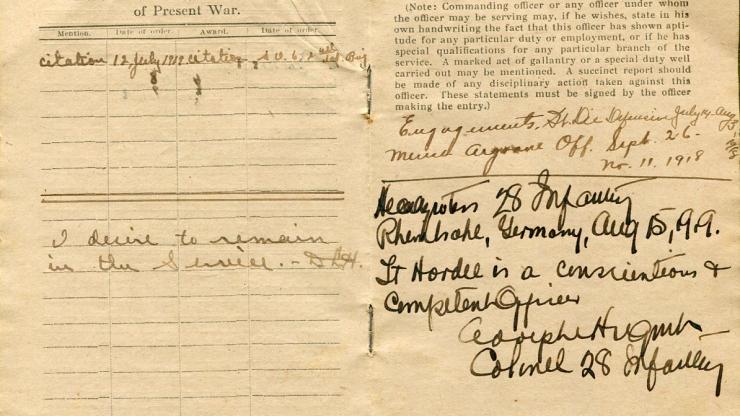 of Present War.
Mention. Date of order. Award. Date of order.
citation 12 July 1919 citation
I desire to remain
in the Service. - D.L.H.
(Note: Commanding officer or any officer under whom
the officer may be serving may, if he wishes, state in his
own handwriting the fact that this officer has shown apti-
tude for any particular duty or employment, or if he has
special qualifications for any particular branch of the
service. A marked act of gallantry or a special duty well
carried out may be mentioned. A succinct report should
be made of any disciplinary action taken against this
officer. These statements must be signed by the officer
making the entry.)
Engagements, St. Die Defensive July 14 - Aug
Meuse Argonne Off. Sept. 26 -
No. 11. 1918
Headqrters 28 Infantry
Germany, Aug 15, 1919.
Lt Hordee is a conscientious &
Competent Officer
Colonel 28 Infantry